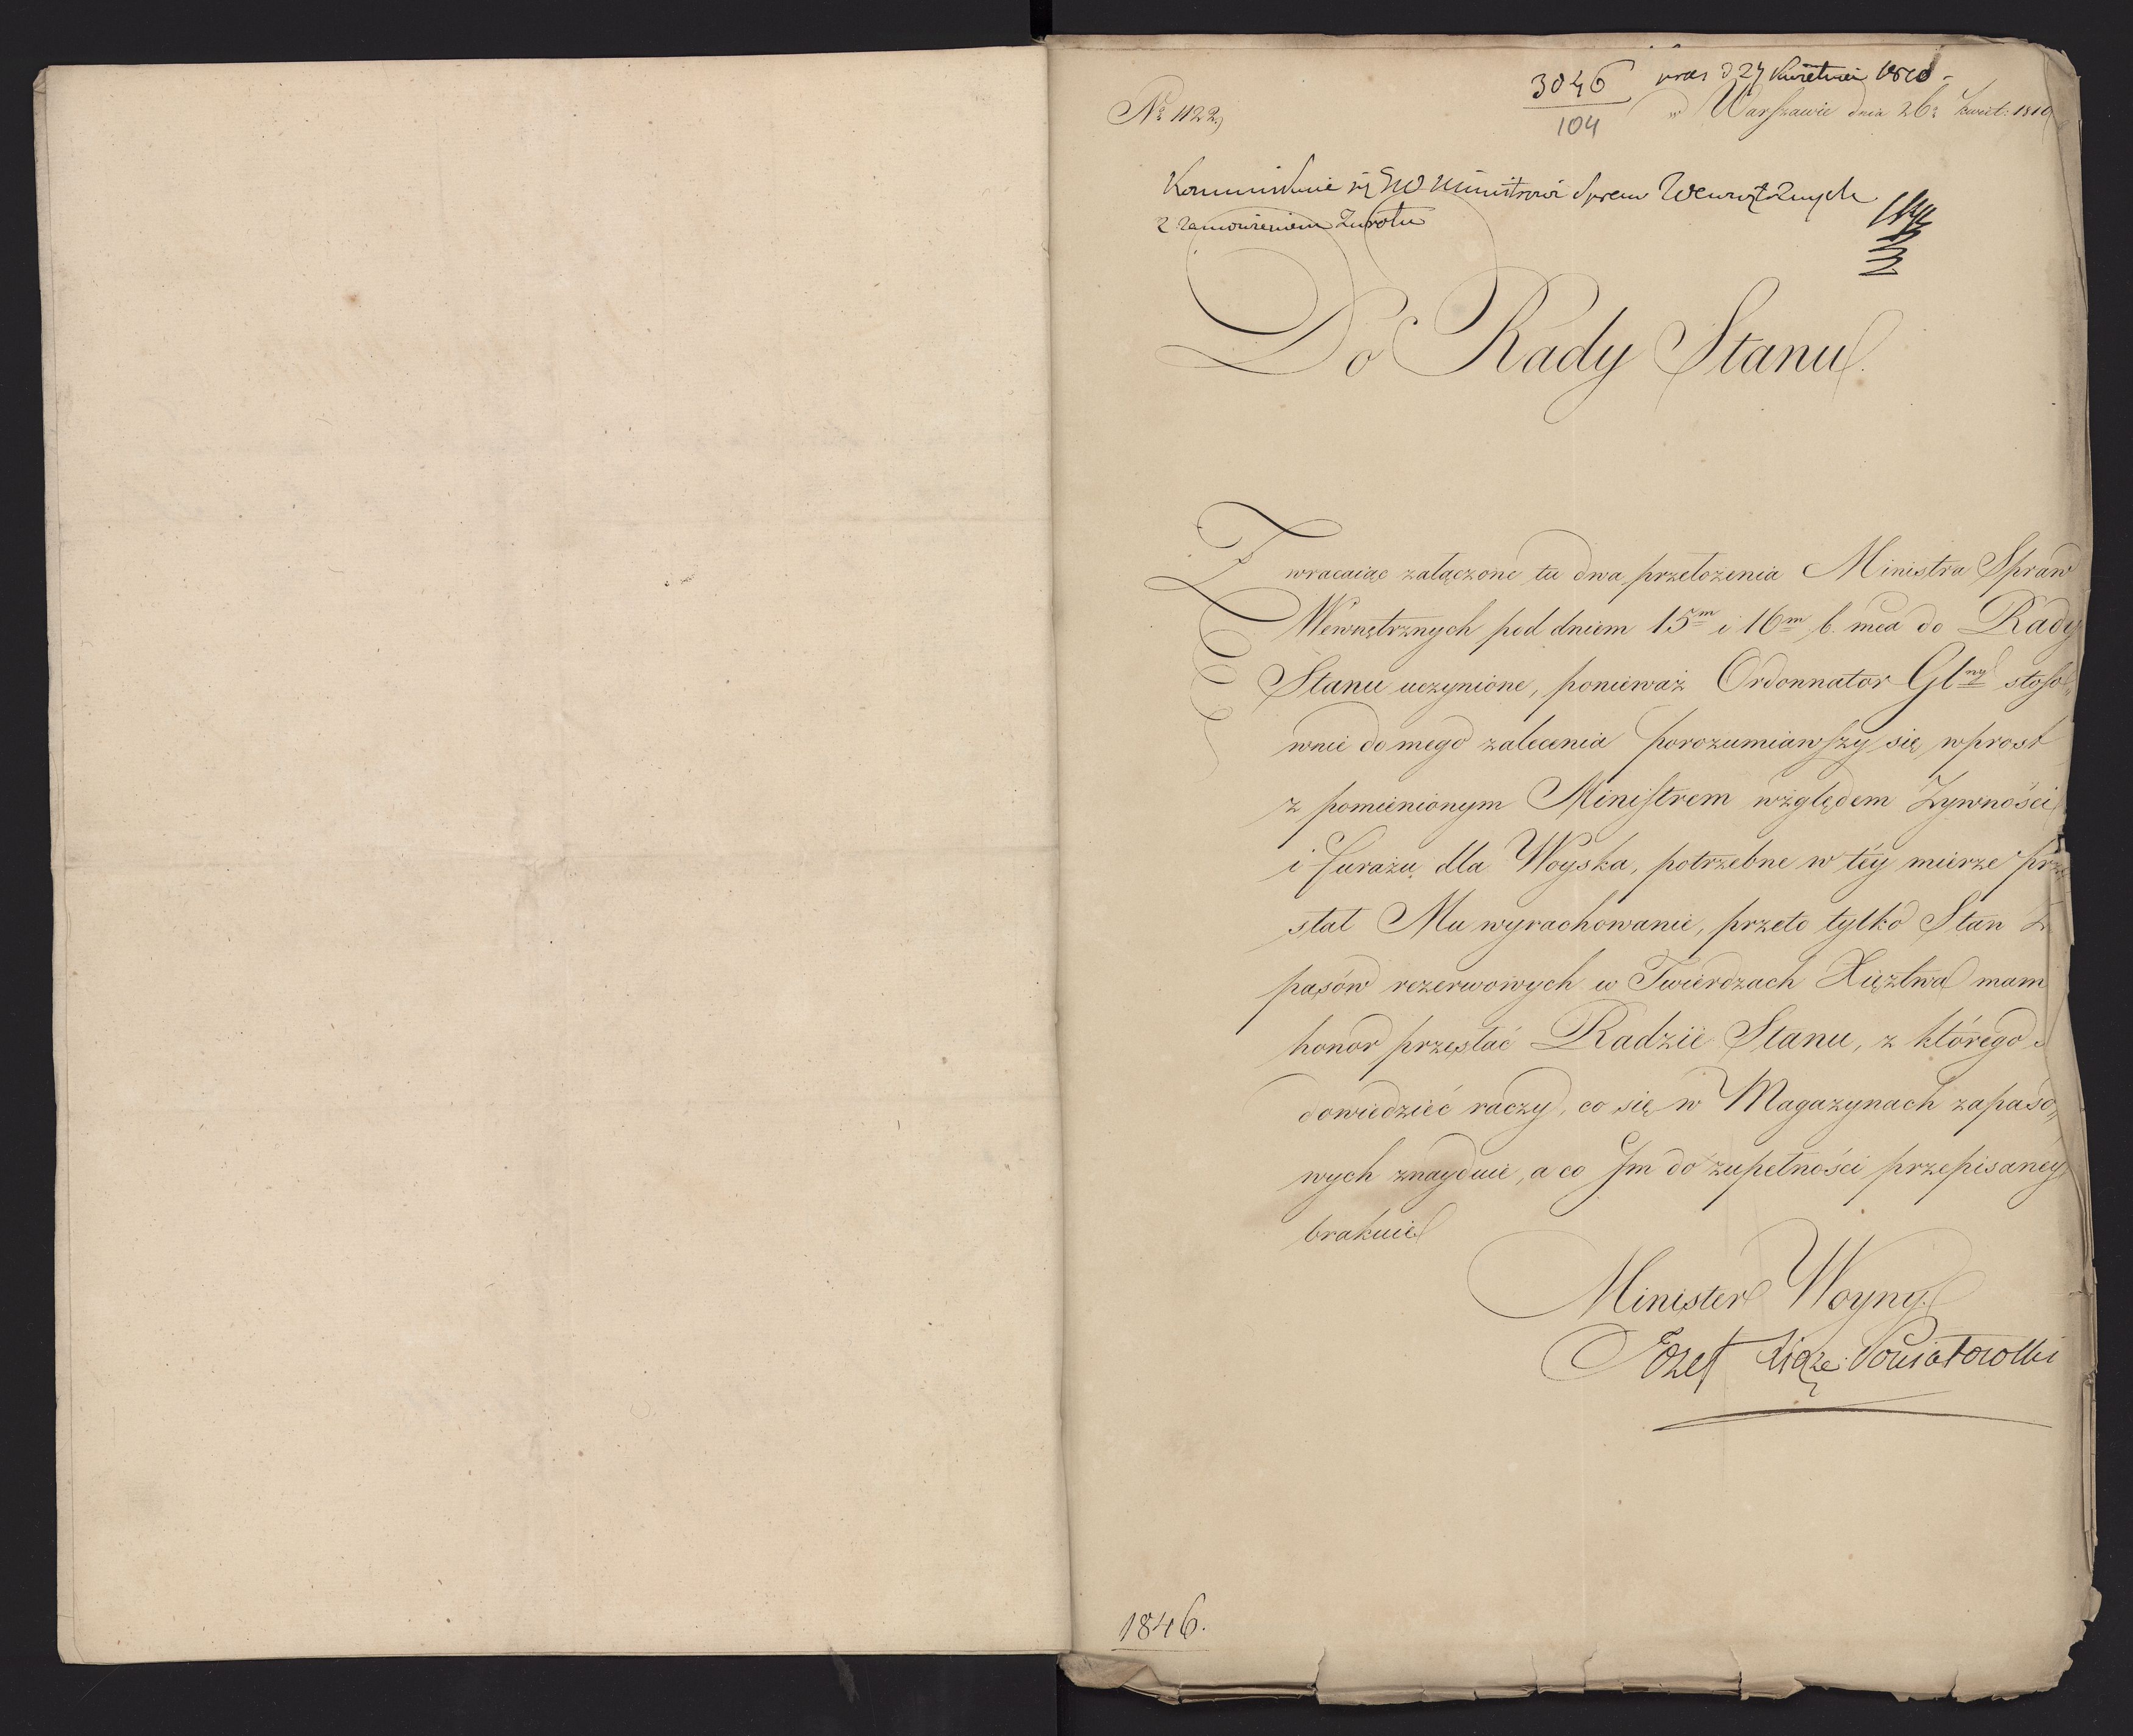 3046 pras d 27 Kwietnia 1810
104
No 1122.
w Warszawie dnia 26: Kwiet: 1810
Kommunikuie się JWO Ministrowi Spraw Wewnętrznych
z zamowieniem Zwrotu
Do Rady Stanu.
Zwracaiąc załączone tu dwa przełożenia Ministra Spraw
Wewnętrznych pod dniem 15m i 16m b. mca do Rady
Stanu uczynione, ponieważ Ordonnator Glny stoso„
wnie do mego zalecenia porozumiawszy się wprost
z pomienionym Ministrem względem Żywności
i furażu dla Woyska, potrzebne w téy mierze prze
słał Mu wyrachowanie, przeto tylko Stan Z
pasów rezerwowych w Twierdzach Xięztwa mam
honor przesłać Radzie Stanu, z którego
dowiedzieć raczy, co się w Magazynach zapaso„
wych znayduie, a co Jm do zupełności przepisaney
brakuie
Minister Woyny
Jozef Xiąże Poniatowski
1846.